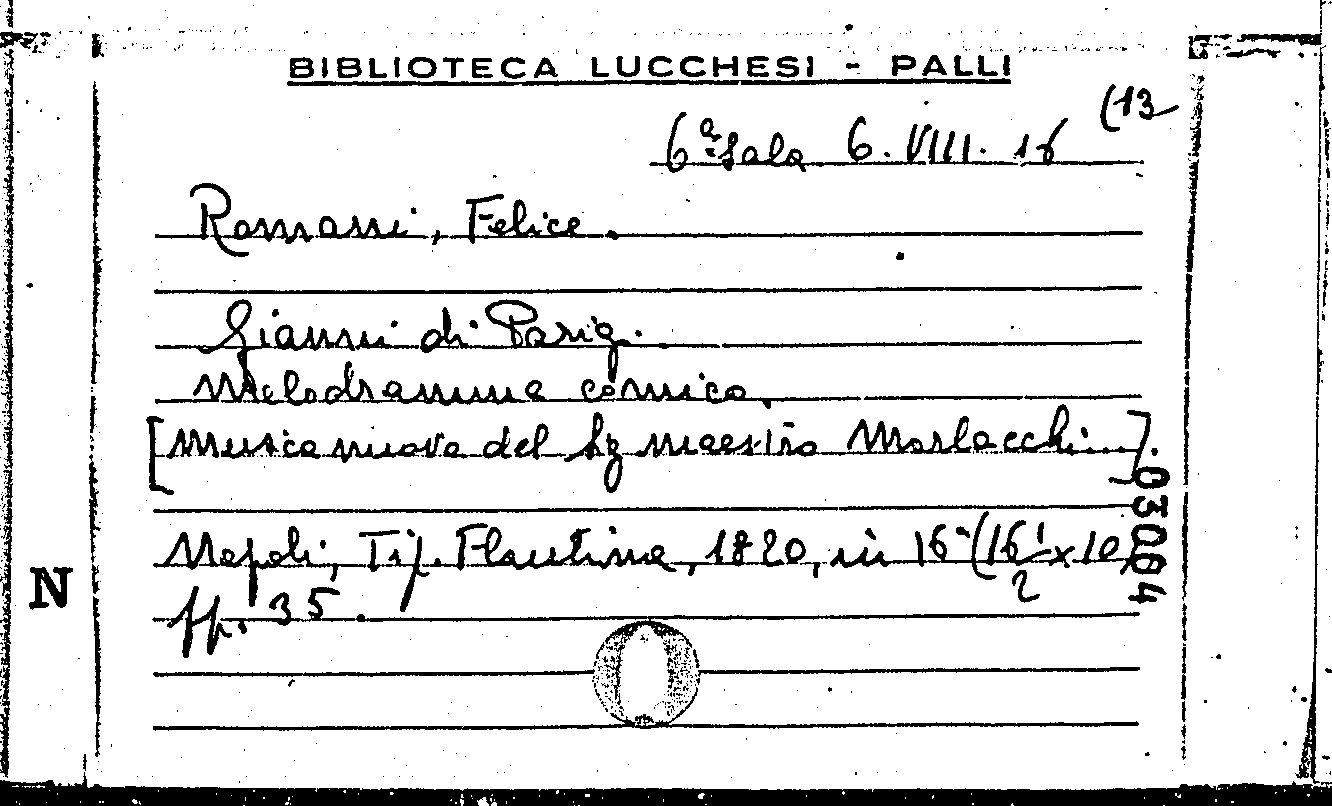 BIBLIOTECA LUCCHESI - PALLI
(13
6ª Sala 6. VIII. 16
Romani, Felice.
Gianni di Parigi.
Melodramma comico.
[Musica nuova del Sig maestro Morlacchi...].
Napoli, Tip. Flautina, 1820, in 16° (16 1/2 x 10)
pp. 35.
03004
N